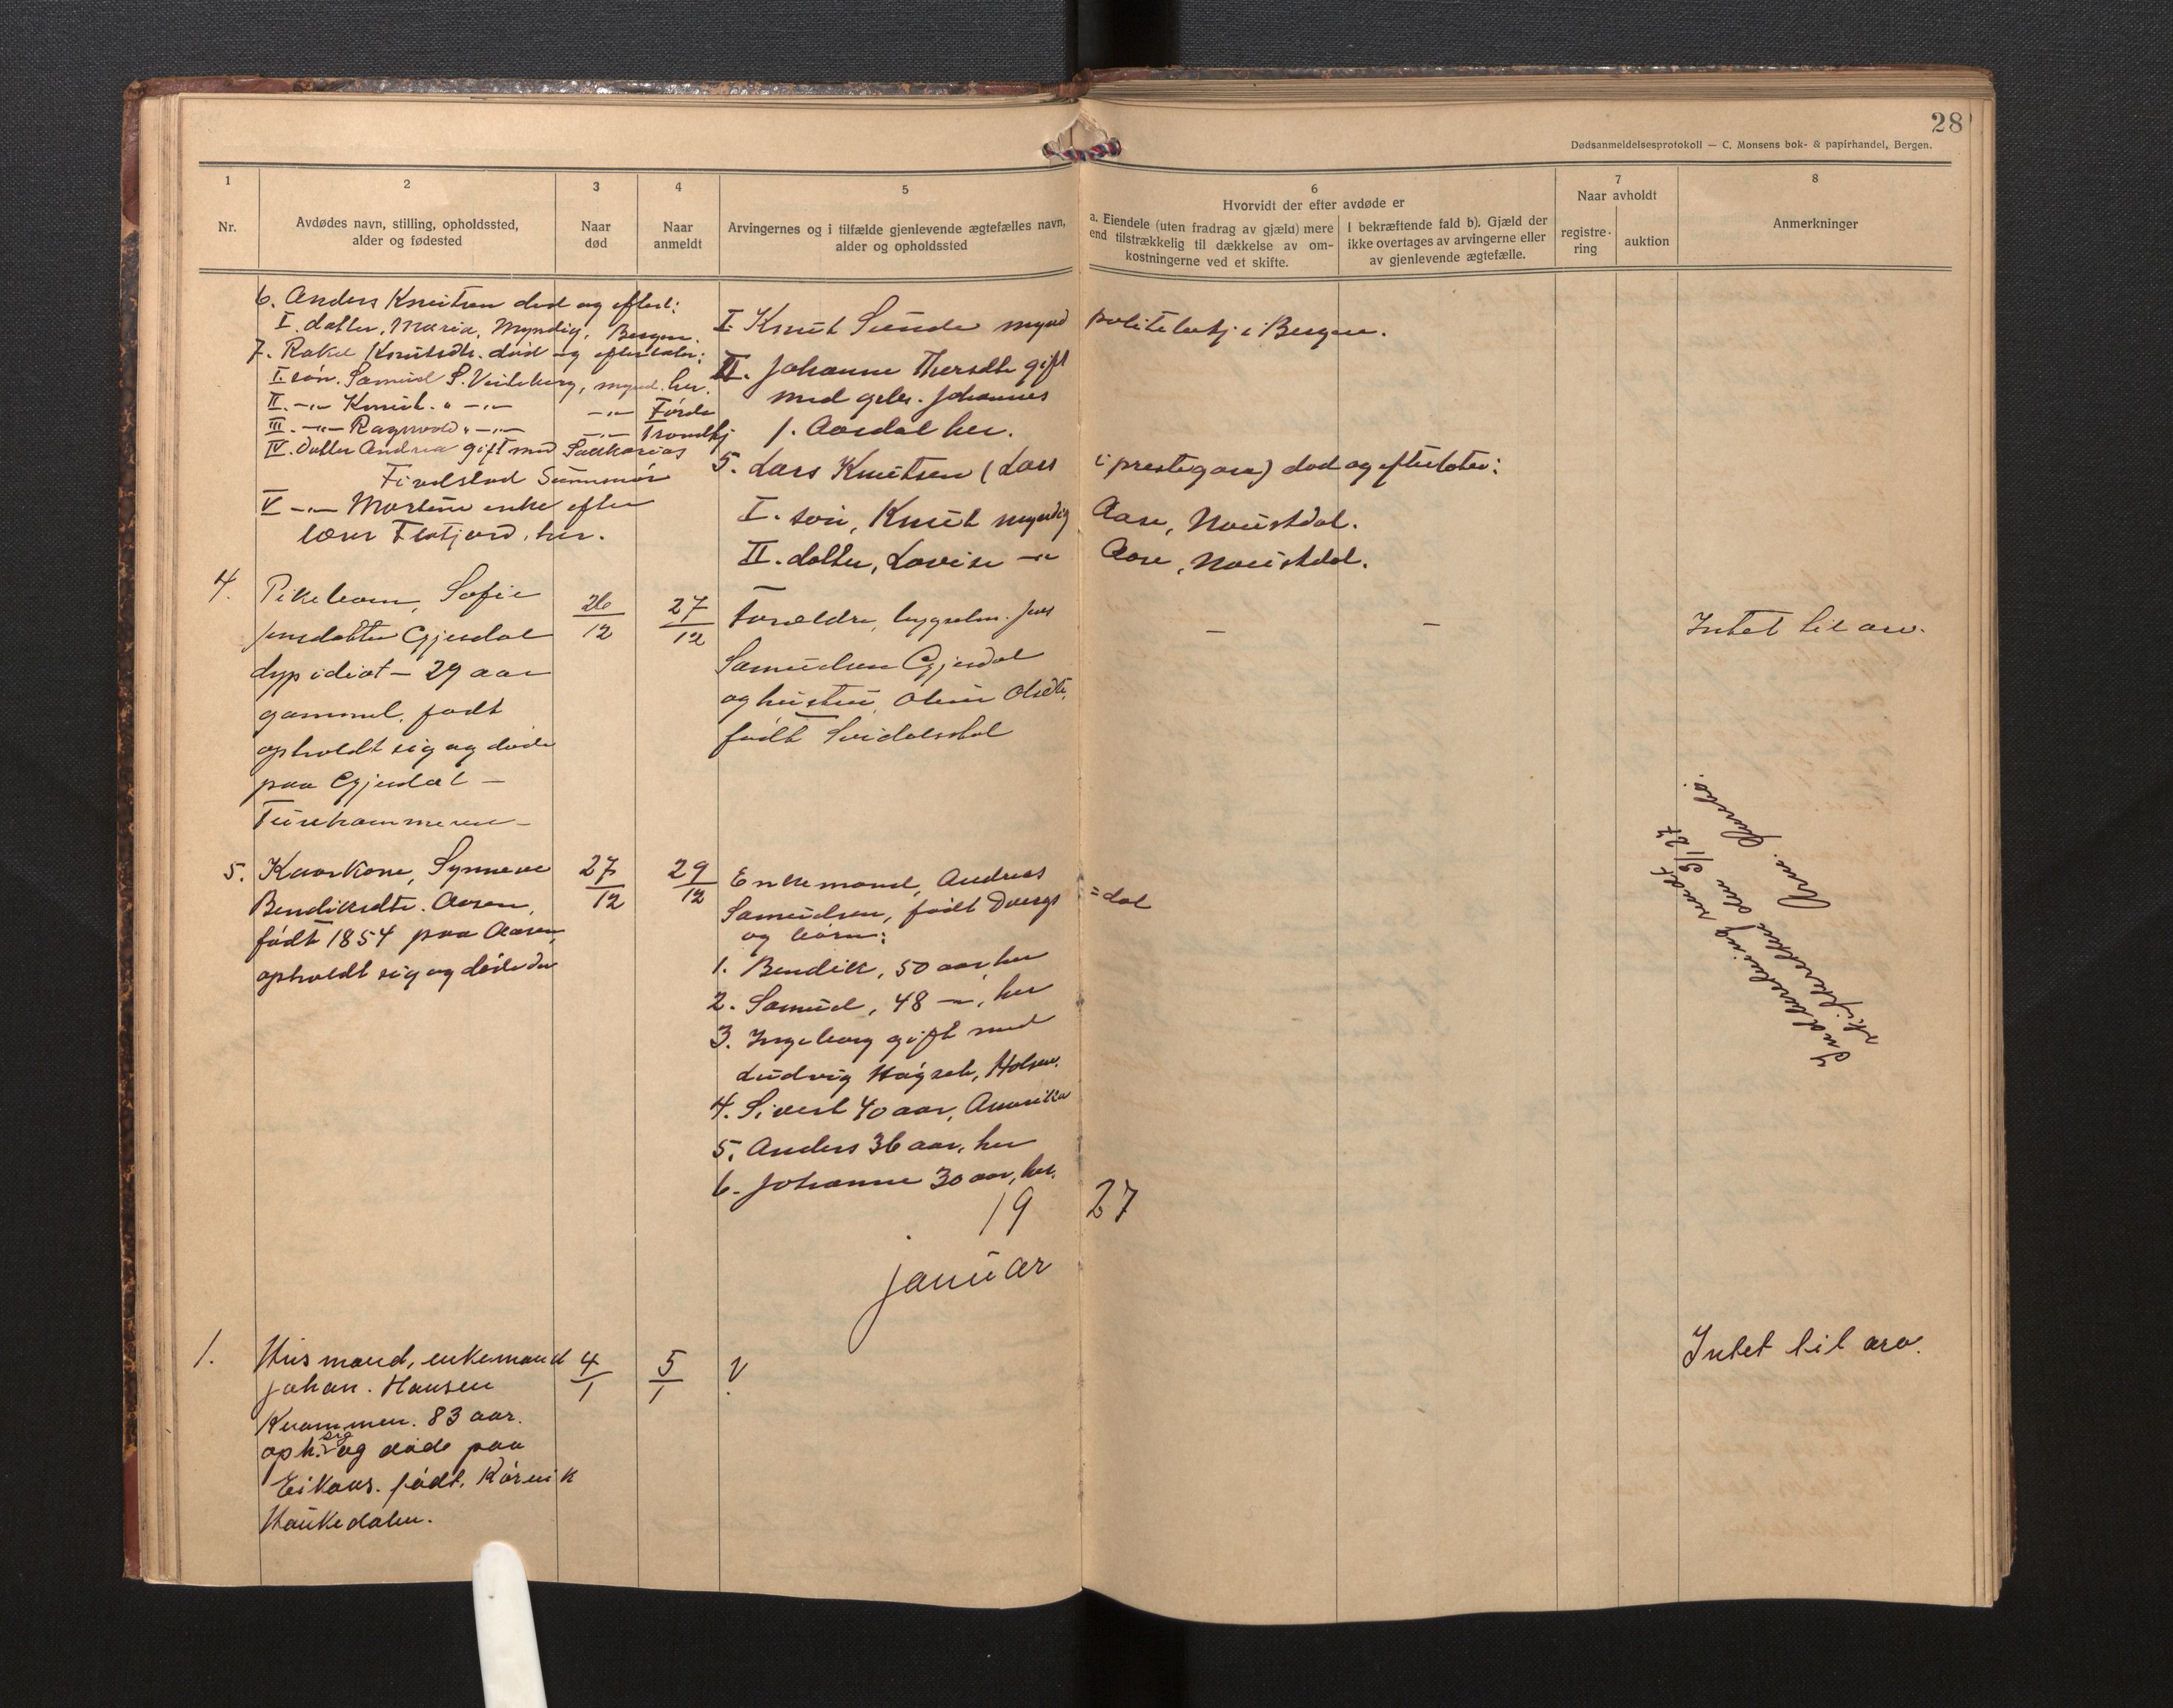 28
Dødsanmeldelsesprotokoll — C. Monsens bok- & papirhandel, Bergen.
1
Nr.
2
Avdødes navn, stilling, opholdssted,
alder og fødested
3
Naar
død
4
Naar
anmeldt
5
Arvingernes og i tilfælde gjenlevende ægtefælles navn,
alder og opholdssted
6
Hvorvidt der efter avdøde er
a. Eiendele (uten fradrag av gjæld) mere
end tilstrækkelig til dækkelse av om-
kostningerne ved et skifte.
I bekræftende fald b). Gjæld der
ikke overtages av arvingerne eller
av gjenlevende ægtefælle.
7
Naar avholdt
registre-
ring
auktion
8
Anmerkninger
6. Anders Knutsen død og efterl:
I. datter, Maria, Myndig, Bergen.
7. Rakel Knutsdtr. død og efterlater:
I. søn. Samuel S. Vieleborg, mynd. her.
II. -"- Knut. " -"- -"- Førde
III. -"- Ragnvald " -"- -"- Trondhj
IV. datter Andrea gift med Sakkarias
Findstad Sunnmør
V -"- Martine enke efter
lærer Flatjord, her.
I. Knut Sunde mynd politibetj. i Bergen.
II. Johanne Thersdtr gift
med gbr. Johannes
J. Aardal her.
5. Lars Knutsen (Lars i prestegara) død og efterlater:
I. søn, Knut myndig Aase, Naustdal.
II. datter, Lovise -"- Aase, Naustdal.
4.
Pikebarn, Sofie
Jensdatter Gjesdal
dyp idiot — 29 aar
gammel, født
opholdt sig og døde
paa Gjesdal —
26/12
27/12
Forældre, bygselm. Jens
Samuelsen Gjesdal
og hustru, Oline Olsdtr.
født
— —
Intet til arv.
5.
Kaarkone, Synneve
Bendiksdtr. Aasen,
født 1854 paa Aasen,
opholdt sig og døde der
27/12
29/12
Enkemand, Andreas
Samuelsen, født Dvergs =dal
og børn:
1. Bendik, 50 aar her
2. Samuel, 48 -"-, her
3. Ingeborg gift med
Ludvig Høgset, Holsen.
4. Sivert 40 aar, Amerika
5. Anders 36 aar, her
6. Johanne 30 aar, her.
Indberetning sendt
skifteretten den 3/1 27
1927
januar
1.
Husmand, enkemand
Johan. Hansen
Kvammen. 83 aar.
oph. sig og døde paa
Eikaas. født, Rørvik
Haukedalen.
4/1
5/1
?
Intet til arv.